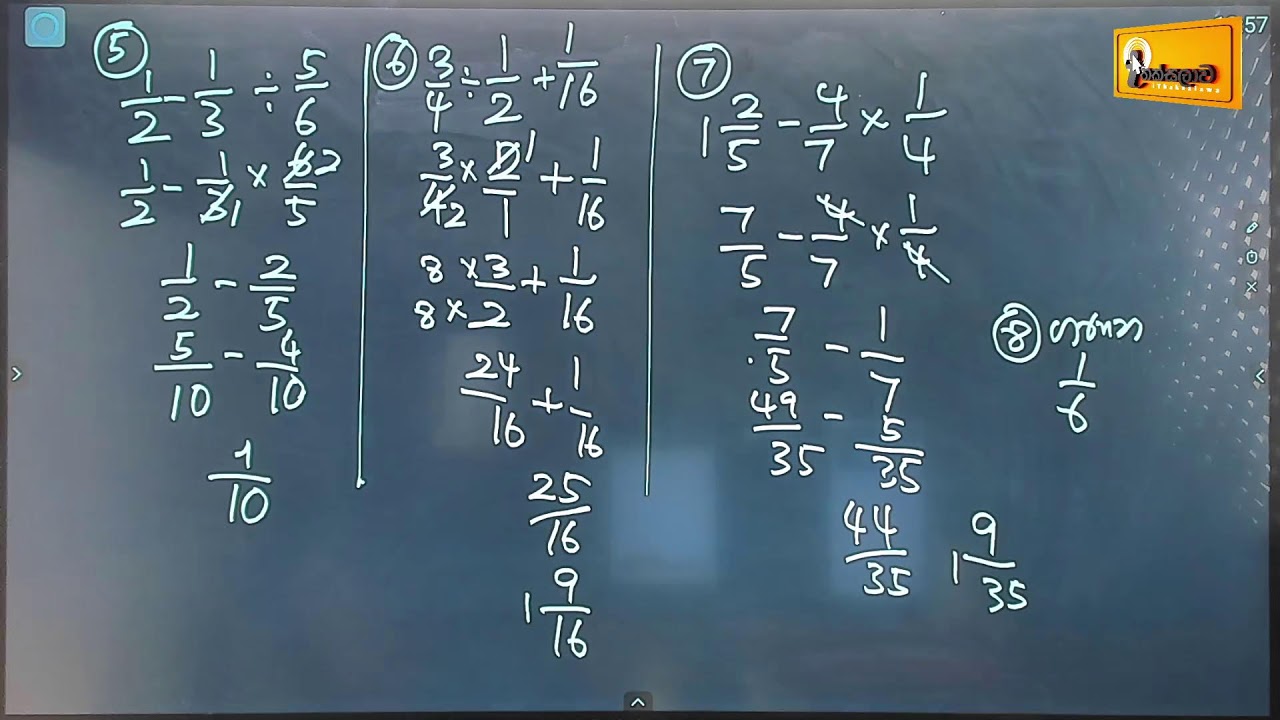 ⑤
1/2 - 1/3 ÷ 5/6
1/2 - 1/3 1 × 6 2/5
1/2 - 2/5
5/10 - 4/10
1/10
⑥ 3/4 ÷ 1/2 + 1/16
3/4 2 × 2 1/1 + 1/16
8 × 3/8 × 2 + 1/16
24/16 + 1/16
25/16
1 9/16
⑦
1 2/5 - 4/7 × 1/4
7/5 - 4/7 × 1/4
7/5 - 1/7
49/35 - 5/35
44/35 1 9/35
⑧
1/6
57